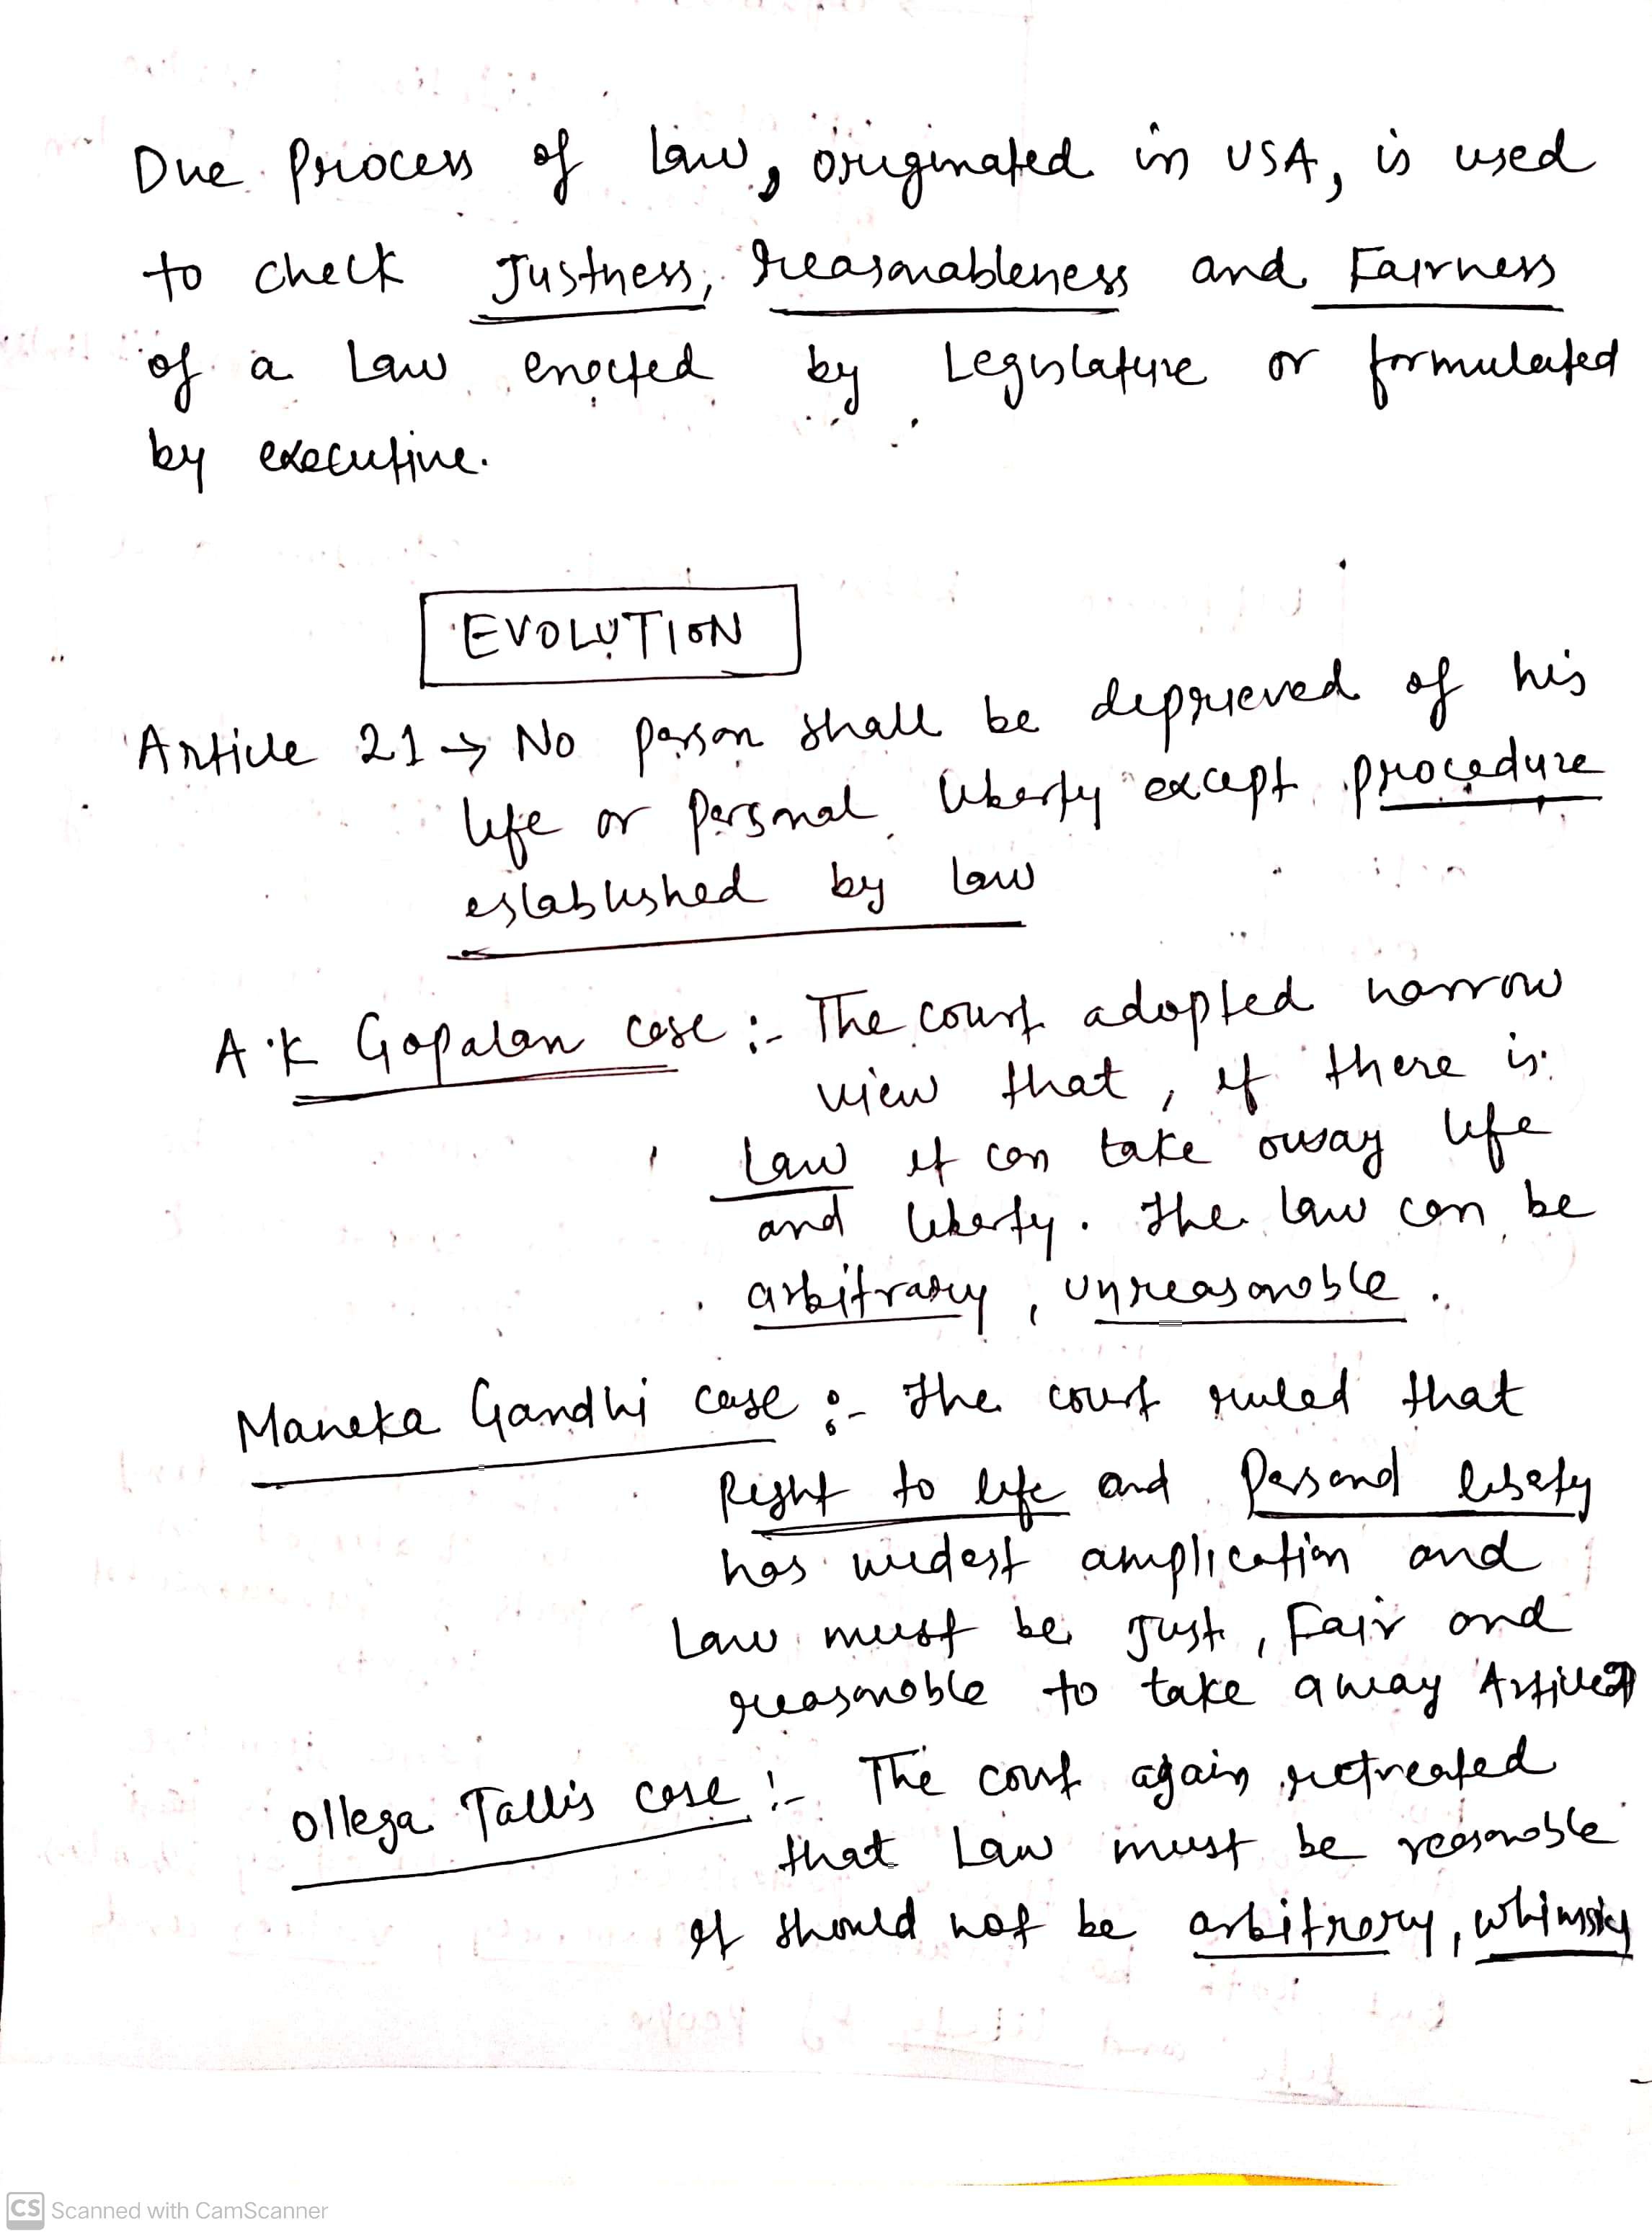 Due Process of Law, originated in USA, is used
to check Justness, reasonableness and Fairness
of a Law enacted by Legislature or formulated
by executive.
EVOLUTION
Article 21 → No person shall be deprieved of his
life or personal liberty except procedure
established by law
A.K Gopalan case :- The court adopted narrow
view that, if there is
Law it can take away life
and liberty. The law can be
arbitrary, unreasonable.
Maneka Gandhi case :- The court ruled that
Right to life and Personal liberty
has widest amplication and
Law must be Just, Fair and
reasonable to take away Article 21
Ollega Tallis case :- The court again retreated
that Law must be reasonable
it should not be arbitrary, whimsky
CS Scanned with CamScanner